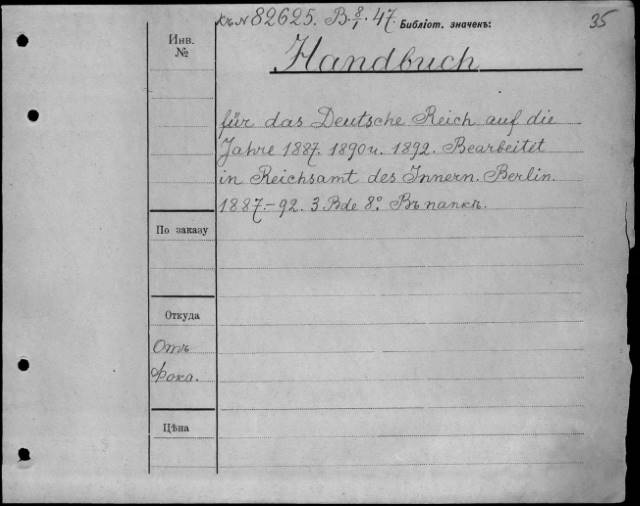 къ N 82625. B. 8/1. 47. Библіот. значекъ: 35
Инв.
№
Handbuch
für das Deutsche Reich auf die
Jahre 1887. 1890 u. 1892. Bearbeitet
in Reichsamt des Innern. Berlin.
1887.-92. 3 Bde 8º. Въ папкѣ.
По заказу
Откуда
Отъ
Фока.
Цѣна